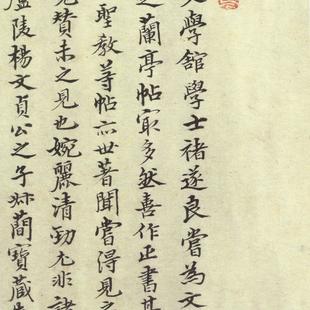 學舘學士褚遂良嘗為文
之蘭亭帖㝡多然善作正書其
聖教等帖亦世著聞嘗得見之
賛未之見也婉麗清勁尤非諸
廬陵楊文貞公之子叔簡寶藏